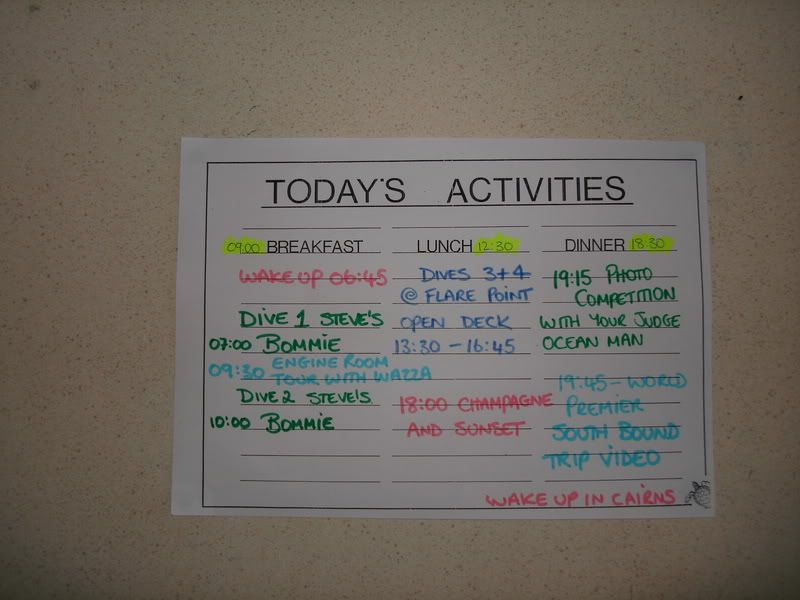 TODAY'S ACTIVITIES
09:00 BREAKFAST
WAKE UP 06:45
DIVE 1 STEVE'S
07:00 BOMMIE
09:30 ENGINE ROOM
TOUR WITH WAZZA
DIVE 2 STEVE'S
10:00 BOMMIE
LUNCH 12:30
DIVES 3+4
@ FLARE POINT
OPEN DECK
13:30 - 16:45
18:00 CHAMPAGNE
AND SUNSET
DINNER 18:30
19:15 PHOTO
COMPETITION
WITH YOUR JUDGE
OCEAN MAN
19:45 - WORLD
PREMIER
SOUTH BOUND
TRIP VIDEO
WAKE UP IN CAIRNS